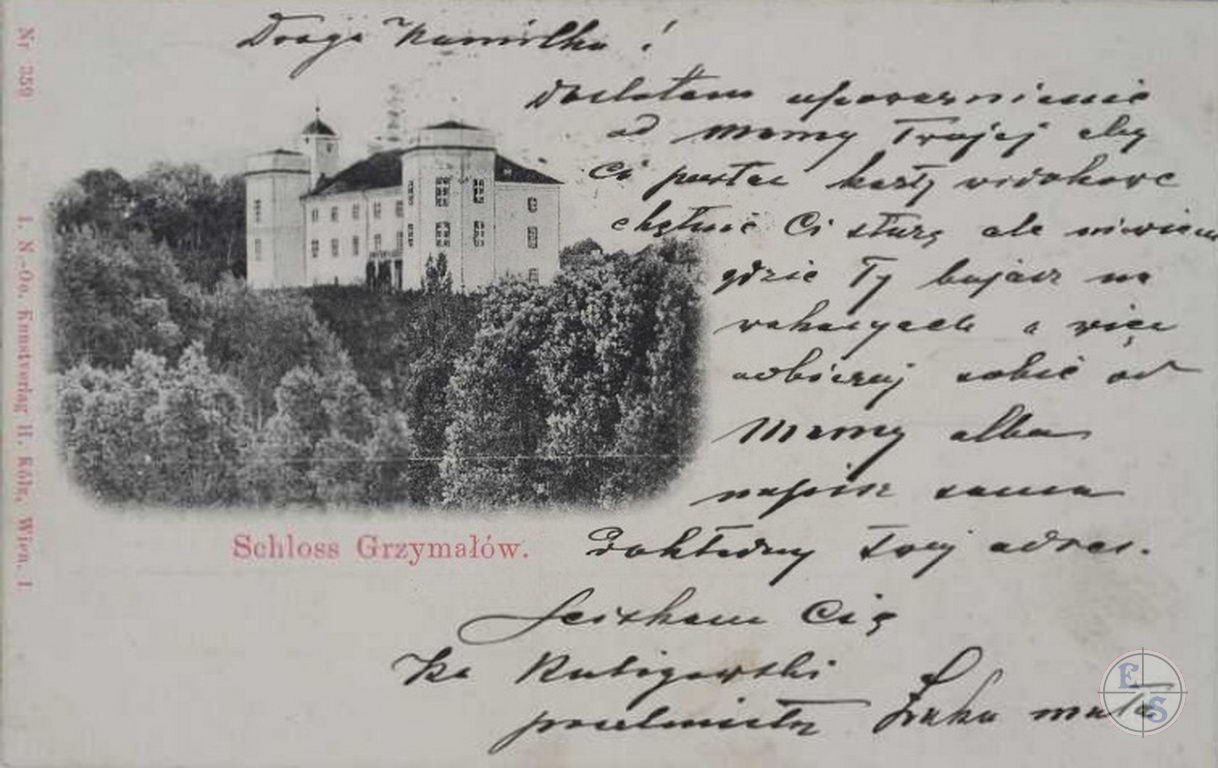 Droga Kamilko!
Dostałam upoważnienie
od Mamy Twojej aby
Ci posłać kartę widokową
chętnie Ci służę ale niewiem
gdzie Ty bujasz na
wakacyach a więc
odbieraj sobie od
Mamy albo
napisz sama
Dokładny Twój adres.
Ściskam Cię
Schloss Grzymałów.
Nr 359
I. N-Oe. Kunstverlag H. Köhr, Wien. I
E S